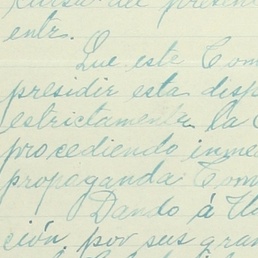 del presen
ente.
Que este Com
presidir esta disp
estrictamente la
procediendo inme
propaganda Com
Dando á Us
ción, por sus gran